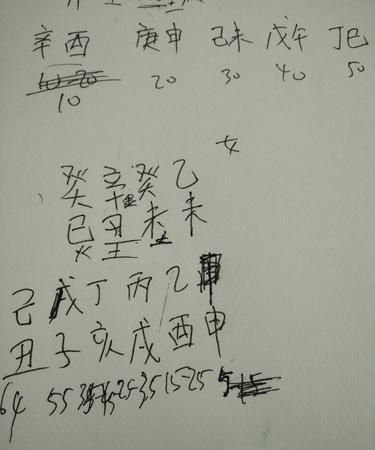 辛酉 庚申 己未 戊午 丁巳
10 20 30 40 50
女
癸 辛 癸 乙
巳 丑 未 未
火 土 土
己 戊 丁 丙 乙
丑 子 亥 戌 酉 申
64 55 25-35 15-25 5